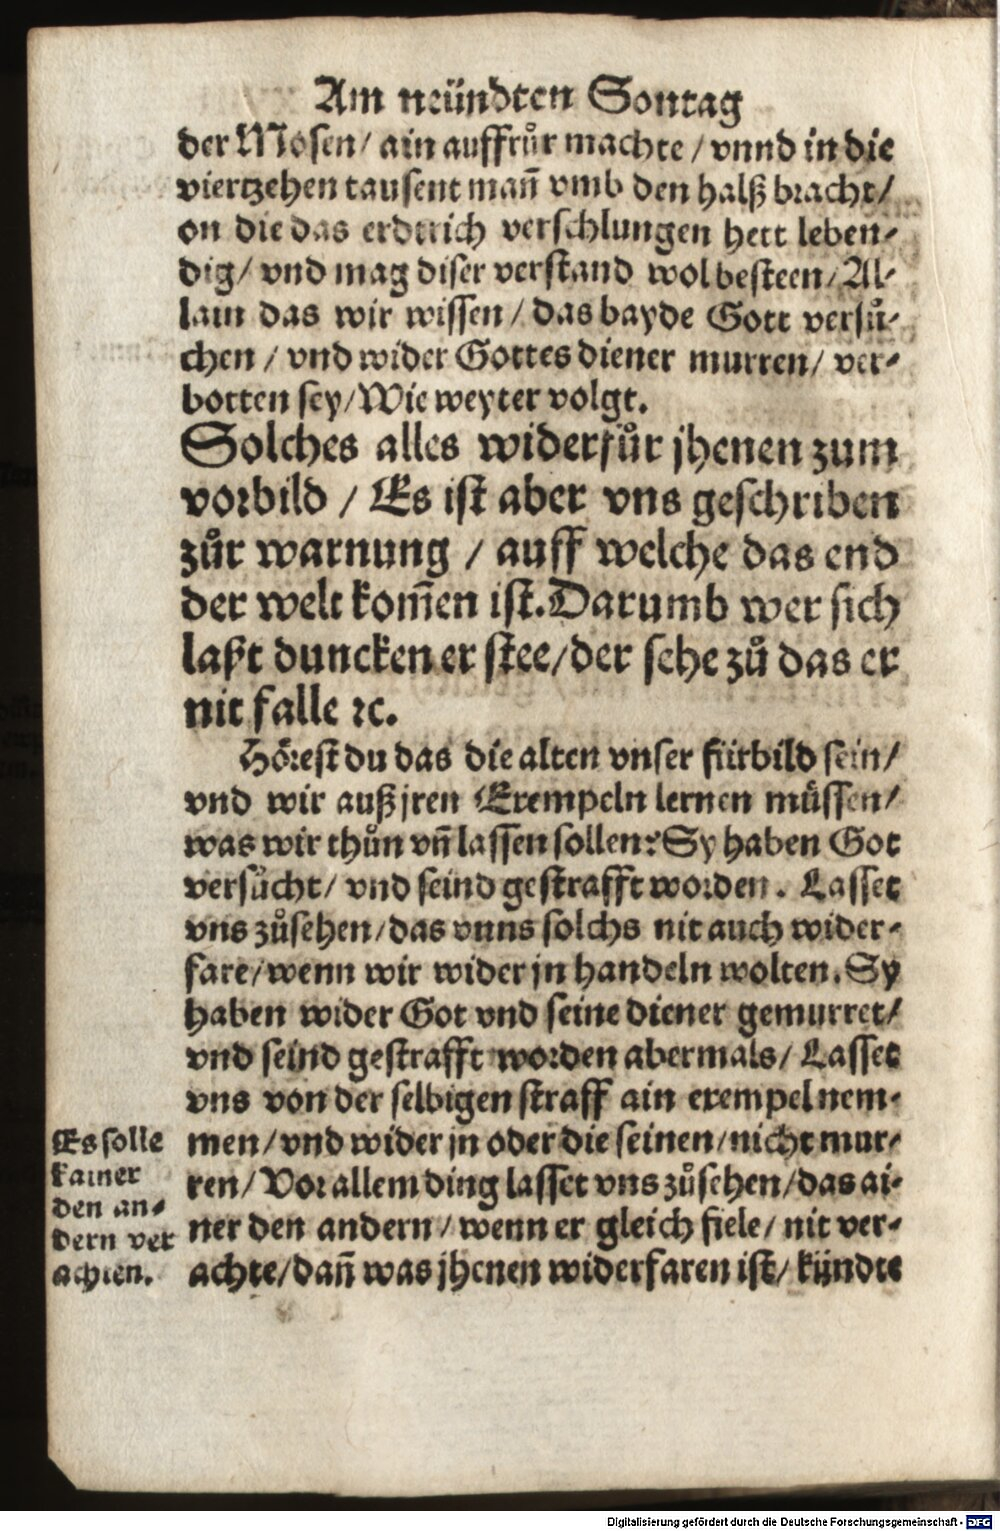 Am neündten Sontag
der Mosen/ ain auffrůr machte/ vnnd in die
viertzehen tausent mañ vmb den halß bracht/
on die das erdtrich verschlungen hett leben-
dig/ vnd mag diser verstand wol besteen/ Al-
lain das wir wissen/ das bayde Gott versů-
chen/ vnd wider Gottes diener murren/ ver-
botten sey/ Wie weyter volgt.
Solches alles widerfůr jhenen zum
vorbild/ Es ist aber vns geschriben
zůr warnung/ auff welche das end
der welt kom̃en ist. Darumb wer sich
laßt duncken er stee/ der sehe zů das er
nit falle ꝛc.
Hörest du das die alten vnser fürbild sein/
vnd wir auß jren Exempeln lernen müssen/
was wir thůn vñ lassen sollen? Sy haben Got
versůcht/ vnd seind gestrafft worden. Lasset
vns zůsehen/ das vnns solchs nit auch wider-
fare/ wenn wir wider jn handeln wolten. Sy
haben wider Got vnd seine diener gemurret/
vnd seind gestrafft worden abermals/ Lasset
vns von der selbigen straff ain exempel nem-
men/ vnd wider jn oder die seinen/ nicht mur-
ren/ Vor allem ding lasset vns zůsehen/ das ai-
ner den andern/ wenn er gleich fiele/ nit ver-
achte/ dañ was jhenen widerfaren ist/ kündte
Es solle
kainer
den an-
dern ver
achten.
Digitalisierung gefördert durch die Deutsche Forschungsgemeinschaft - DFG